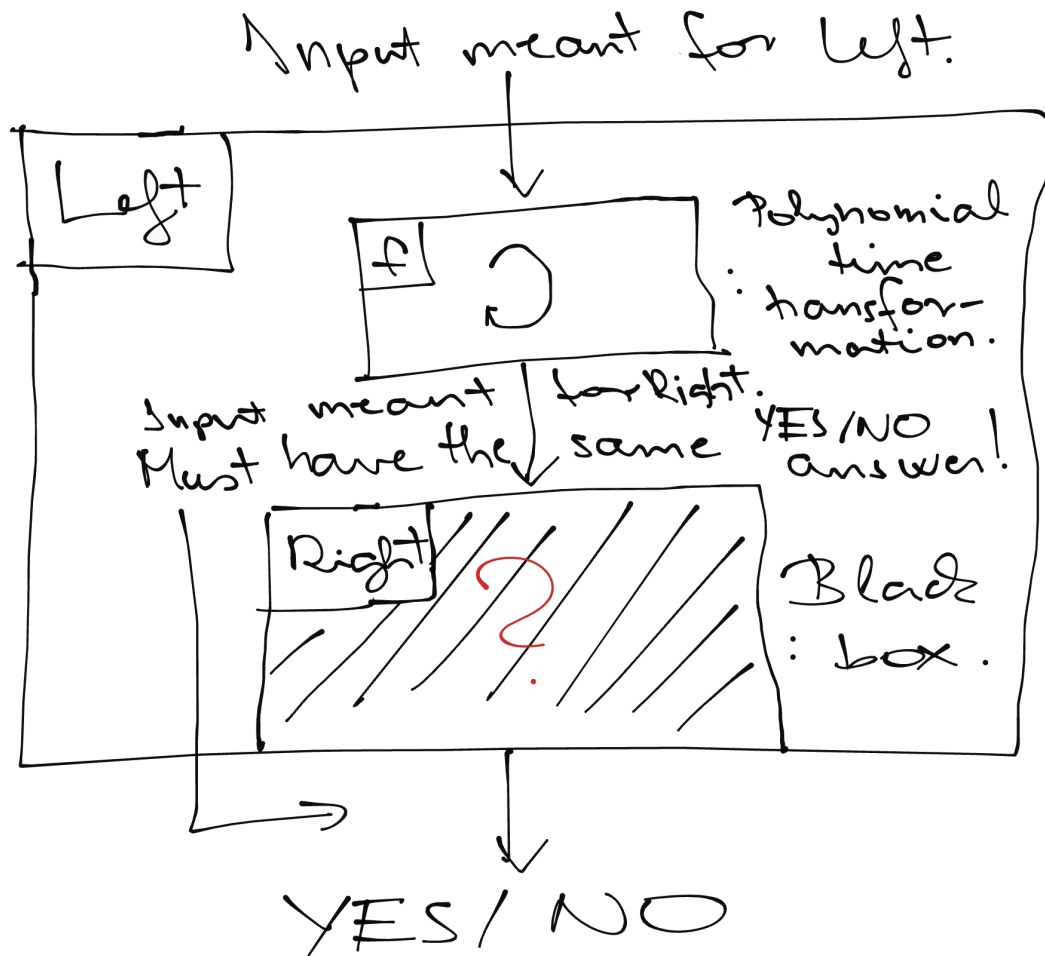 Input meant for Left.
Left
f
: Polynomial
time
transfor-
mation.
Input meant for Right.
Must have the same YES/NO
answer!
Right
?
: Black
box.
YES/NO